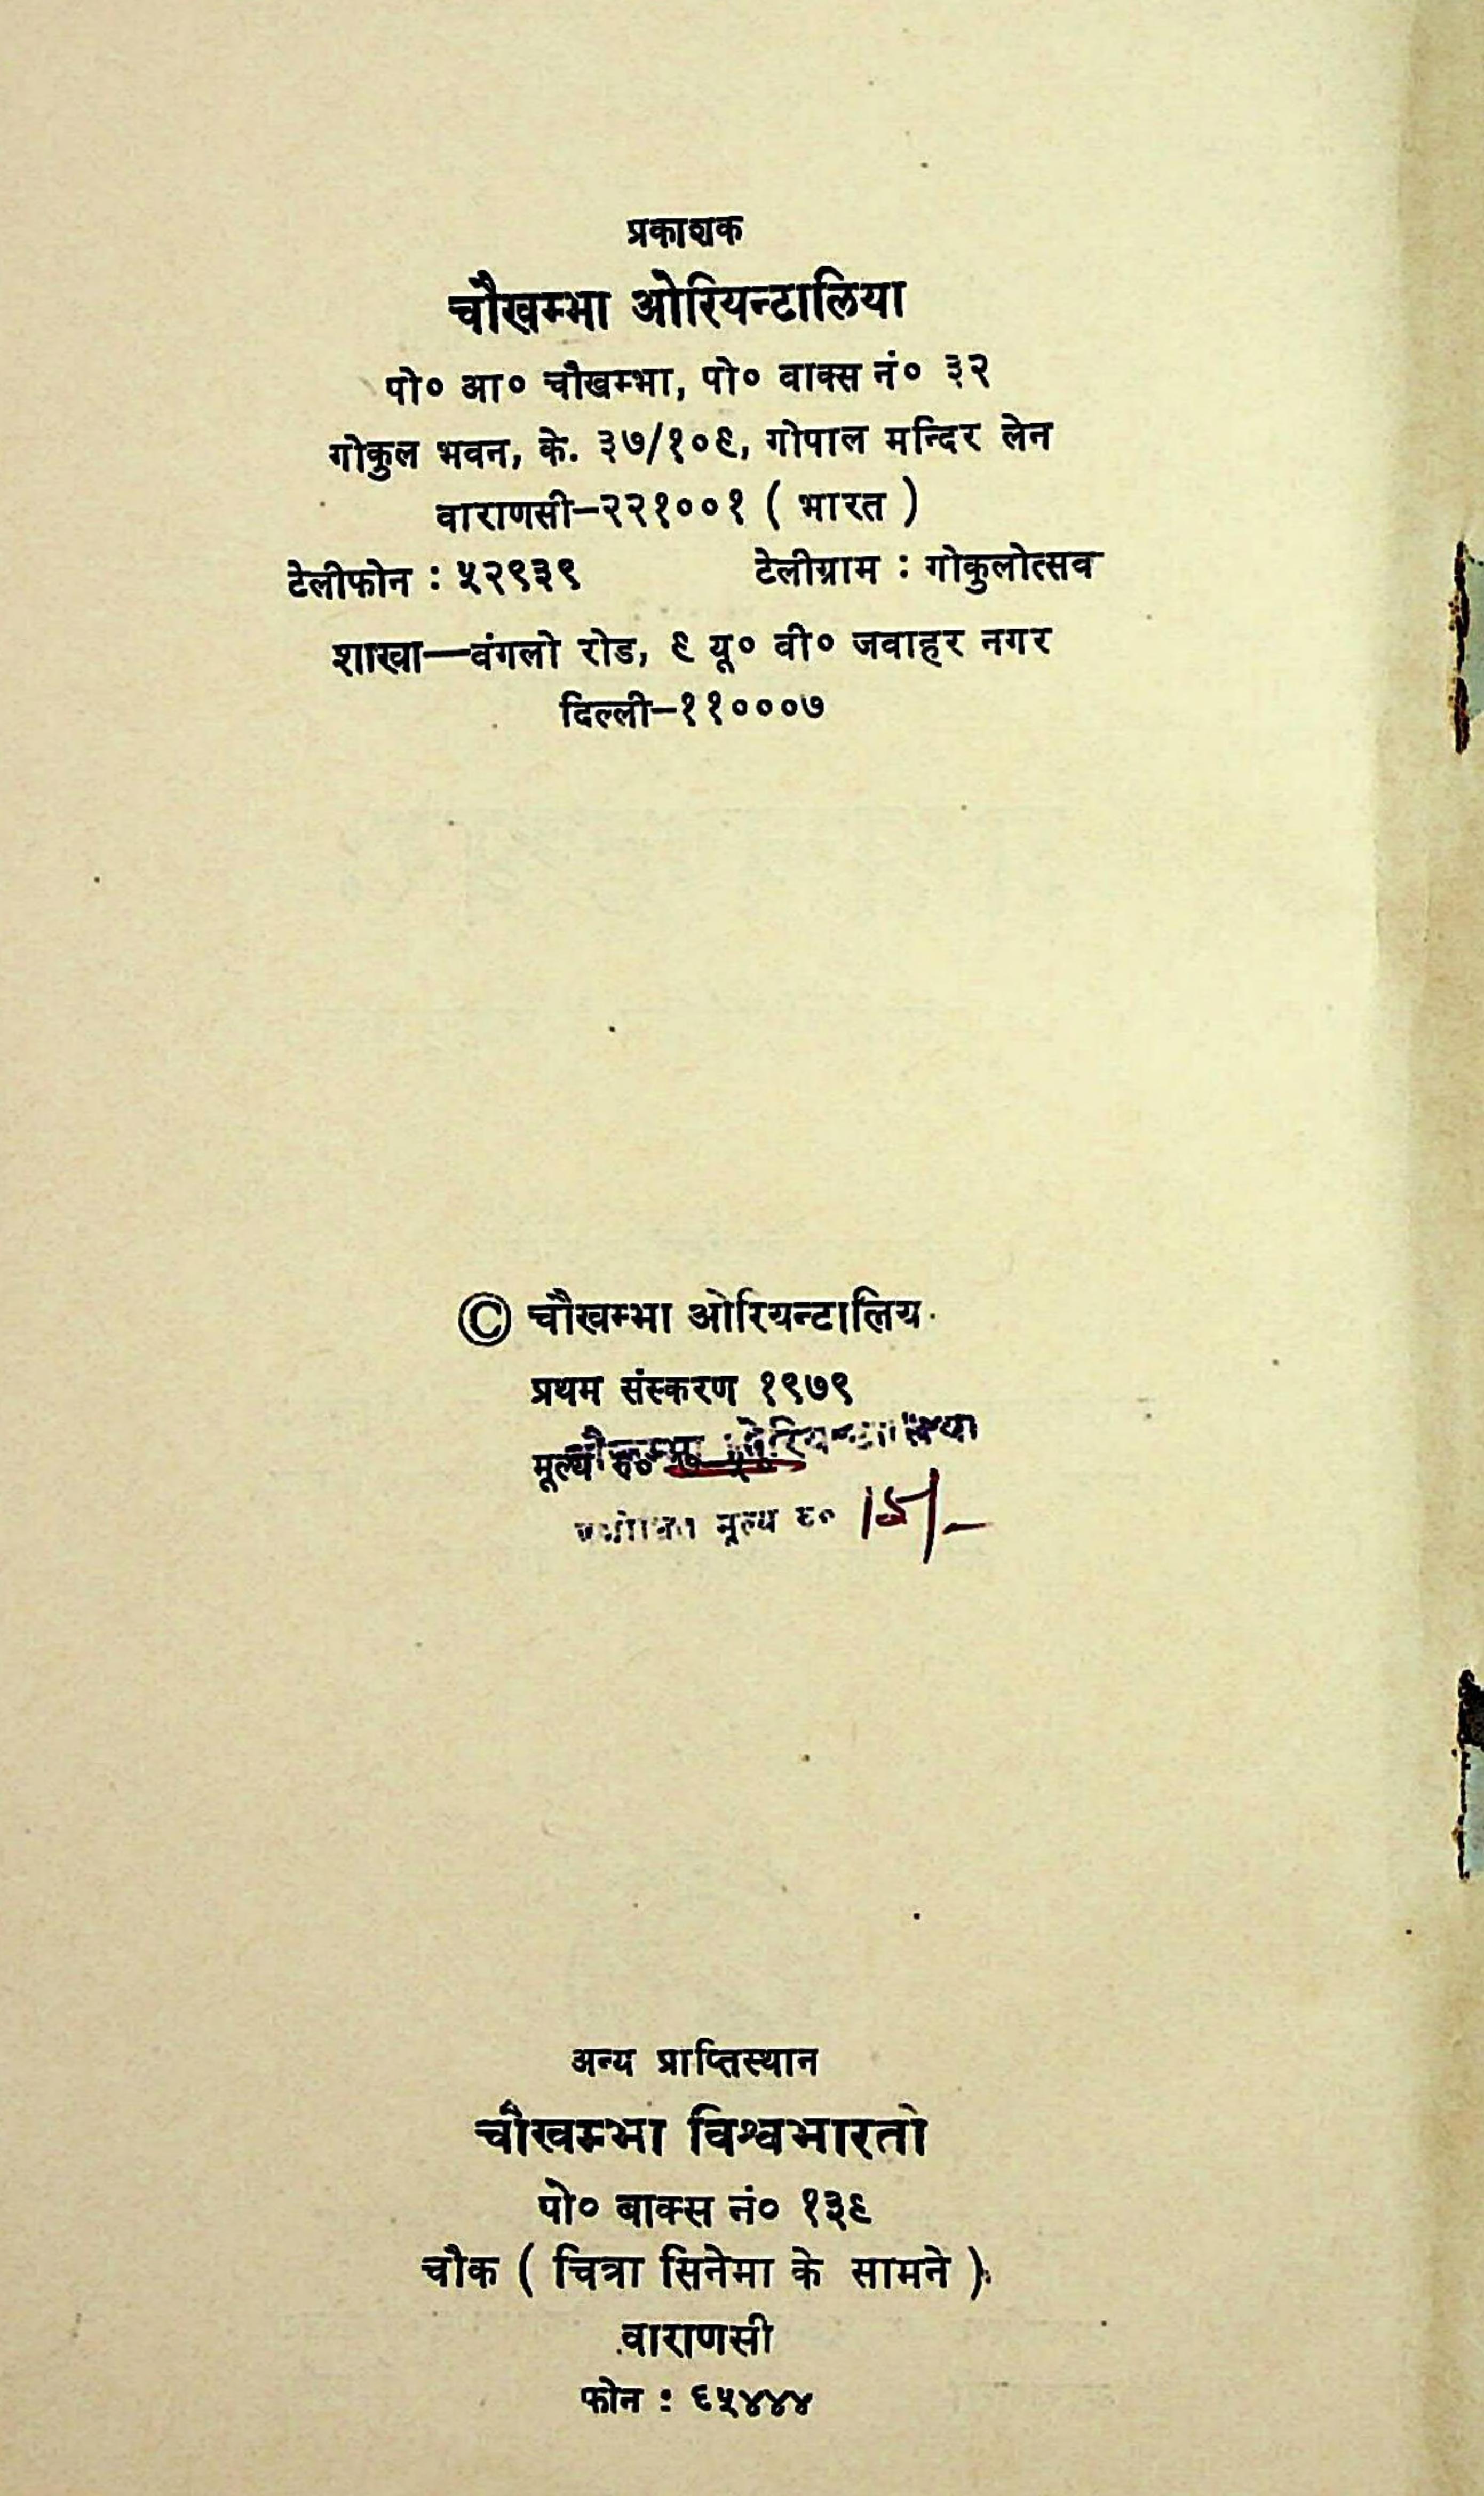 प्रकाशक
चौखम्भा ओरियन्टालिया
पो० आ० चौखम्भा, पो० वाक्स नं० ३२
गोकुल भवन, के. ३७/१०९, गोपाल मन्दिर लेन
वाराणसी-२२१००१ ( भारत )
टेलीफोन : ५२९३९ टेलीग्राम : गोकुलोत्सव
शाखा—वंगलो रोड, ९ यू० वी० जवाहर नगर
दिल्ली-११०००७
© चौखम्भा ओरियन्टालिय
प्रथम संस्करण १९७९
मूल्य रु०
मूल्य रु० 15/-
अन्य प्राप्तिस्थान
चौखम्भा विश्वभारती
पो० बाक्स नं० १३९
चौक ( चित्रा सिनेमा के सामने )
वाराणसी
फोन : ६५४४४